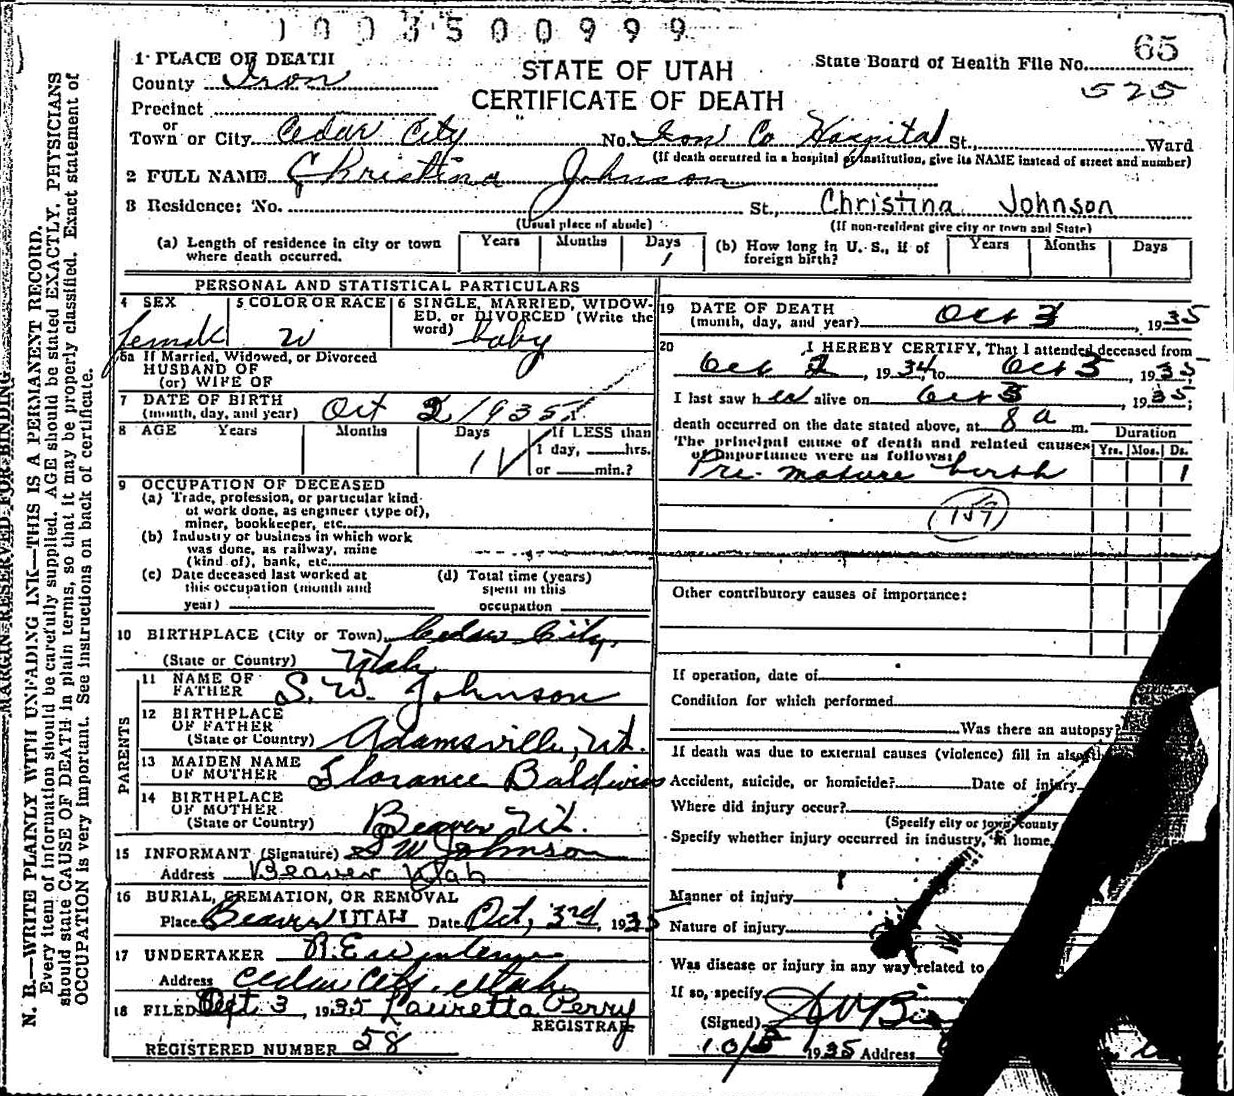 1003500999
65
1 PLACE OF DEATH
STATE OF UTAH
State Board of Health File No.
County Iron
CERTIFICATE OF DEATH
525
Precinct
or
Town or City Cedar City No. Iron Co Hospital St., Ward
(If death occurred in a hospital or institution, give its NAME instead of street and number)
2 FULL NAME Christina Johnson
3 Residence: No. St., Christina Johnson
(Usual place of abode) (If non-resident give city or town and State)
(a) Length of residence in city or town where death occurred. Years Months Days 1
(b) How long in U. S., if of foreign birth? Years Months Days
PERSONAL AND STATISTICAL PARTICULARS
4 SEX female
5 COLOR OR RACE W
6 SINGLE, MARRIED, WIDOW-
ED, or DIVORCED (Write the
word) baby
5a If Married, Widowed, or Divorced
HUSBAND OF
(or) WIFE OF
7 DATE OF BIRTH
(month, day, and year) Oct 2 1935
8 AGE Years Months Days If LESS than
1 1 day, hrs.
or min.?
9 OCCUPATION OF DECEASED
(a) Trade, profession, or particular kind
of work done, as engineer (type of),
miner, bookkeeper, etc.
(b) Industry or business in which work
was done, as railway, mine
(kind of), bank, etc.
(c) Date deceased last worked at
this occupation (month and
year)
(d) Total time (years)
spent in this
occupation
10 BIRTHPLACE (City or Town) Cedar City,
(State or Country) Utah
PARENTS
11 NAME OF
FATHER S. W. Johnson
12 BIRTHPLACE
OF FATHER
(State or Country) Adamsville, Ut.
13 MAIDEN NAME
OF MOTHER Florance Baldwin
14 BIRTHPLACE
OF MOTHER
(State or Country) Beaver Ut.
15 INFORMANT (Signature) S W Johnson
Address Beaver Utah
16 BURIAL, CREMATION, OR REMOVAL
Place Beaver UTAH Date Oct, 3rd, 1935
17 UNDERTAKER
Address Cedar City, Utah
18 FILED 3, 1935 Lauretta Perry
REGISTRAR
REGISTERED NUMBER 58
19 DATE OF DEATH
(month, day, and year) Oct 3, 1935
20 I HEREBY CERTIFY, That I attended deceased from
Oct 2, 1934 to Oct 3, 1935
I last saw her alive on Oct 3, 1935;
death occurred on the date stated above, at 8 a m.
The principal cause of death and related causes
of importance were as follows: Duration
Yrs. Mos. Ds.
Pre-mature birth 1
159
Other contributory causes of importance:
If operation, date of
Condition for which performed
Was there an autopsy?
If death was due to external causes (violence) fill in also
Accident, suicide, or homicide? Date of injury
Where did injury occur?
(Specify city or town, county
Specify whether injury occurred in industry, in home,
Manner of injury
Nature of injury
Was disease or injury in any way related to
If so, specify
(Signed)
1935 Address
MARGIN RESERVED FOR BINDING
N. B.—WRITE PLAINLY WITH UNFADING INK—THIS IS A PERMANENT RECORD.
Every item of information should be carefully supplied. AGE should be stated EXACTLY. PHYSICIANS
should state CAUSE OF DEATH in plain terms, so that it may be properly classified. Exact statement of
OCCUPATION is very important. See instructions on back of certificate.